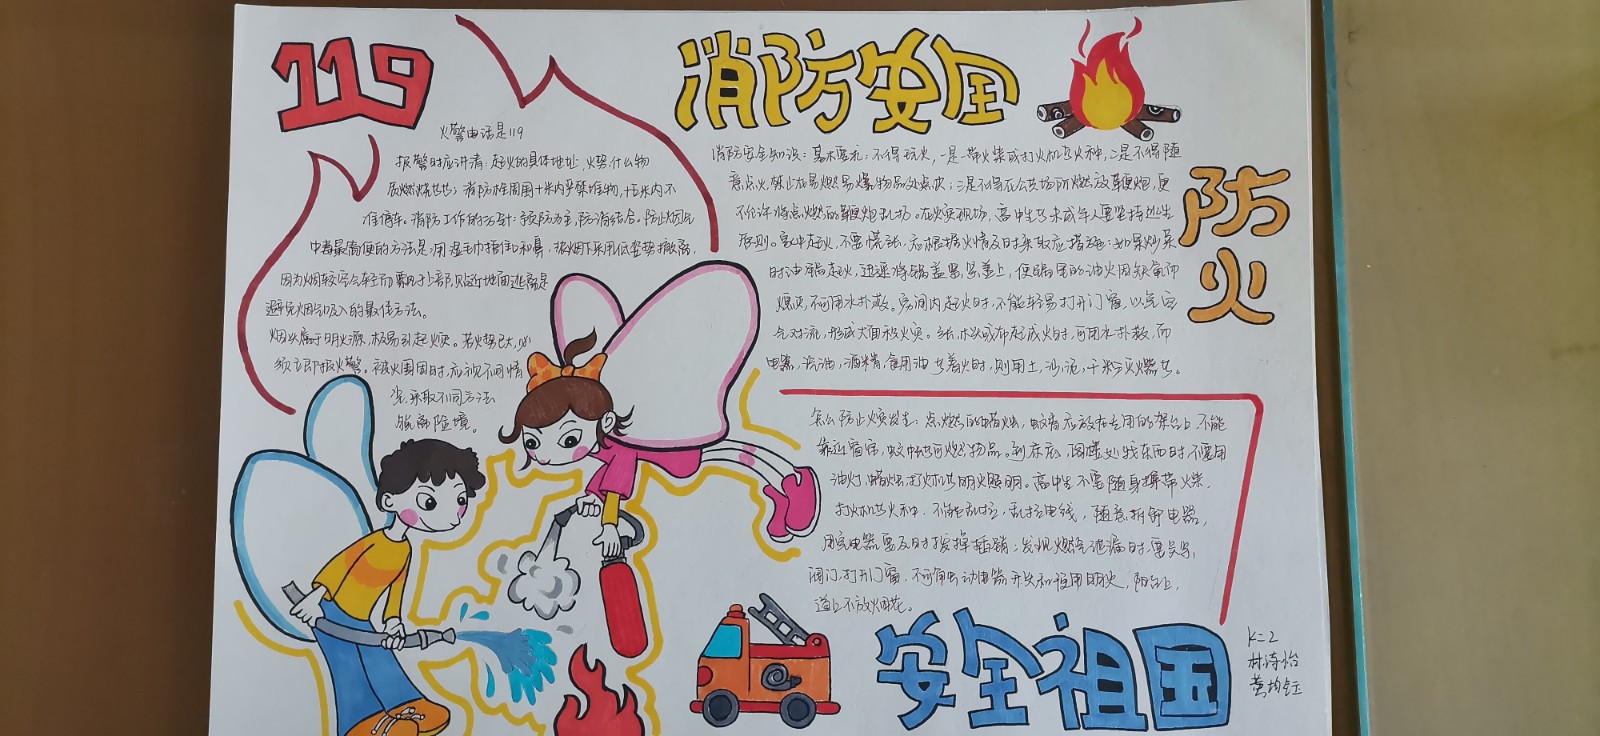 119
消防安全
防火
火警电话是119
报警时应讲清：起火的具体地址，火势，什么物
质燃烧等等；消防栓周围十米内严禁堆物，十五米内不
准停车。消防工作的方针：预防为主，防消结合。防止烟气
中毒最简便的方法是：用湿毛巾捂住口和鼻，
因为烟较空气轻而飘于上部，贴近地面逃离是
避免烟气吸入的最佳方法。
烟头属于明火源，极易引起火灾。若火势已大，
须立即报火警。被火围困时，应视不同情
况，采取不同方法
脱离险境。
消防安全知识：基本要求：不得玩火，一是一带火柴或打火机等火种，二是不得随
意点火，禁止在易燃易爆物品处点火；三是不得在公共场所燃放鞭炮，更
不允许将点燃的鞭炮乱扔。在火灾现场，高中生等未成年人要坚持逃生
原则。家中起火，不要慌张，应根据火情及时采取应措施：如果炒菜
时油锅起火，迅速将锅盖紧盖上，使锅里的油火因缺氧而
熄灭，不可用水扑救。房间内起火时，不能轻易打开门窗，以免空
气对流，形成大面积火灾。纸、木头或布起火时，可用水扑救，而
电器、汽油、酒精、食用油等着火时，则用土、沙、泥、干粉灭火器等。
怎么防止火灾发生：点燃的蜡烛，蚊香应放在专用的架台上，不能
靠近窗帘，蚊帐等可燃物品。到床底、阁楼处找东西时，不要用
油灯、蜡烛、打火机等明火照明。高中生不要随身携带火柴、
打火机等火种，不能乱拉、乱接电线，随意拆卸电器，
用完电器要及时拔掉插销；发现燃气泄漏时，要关
阀门，打开门窗，不可触动电器开关和使用明火，阳台上，
道上不放烟花。
安全祖国
K二2
林诗怡